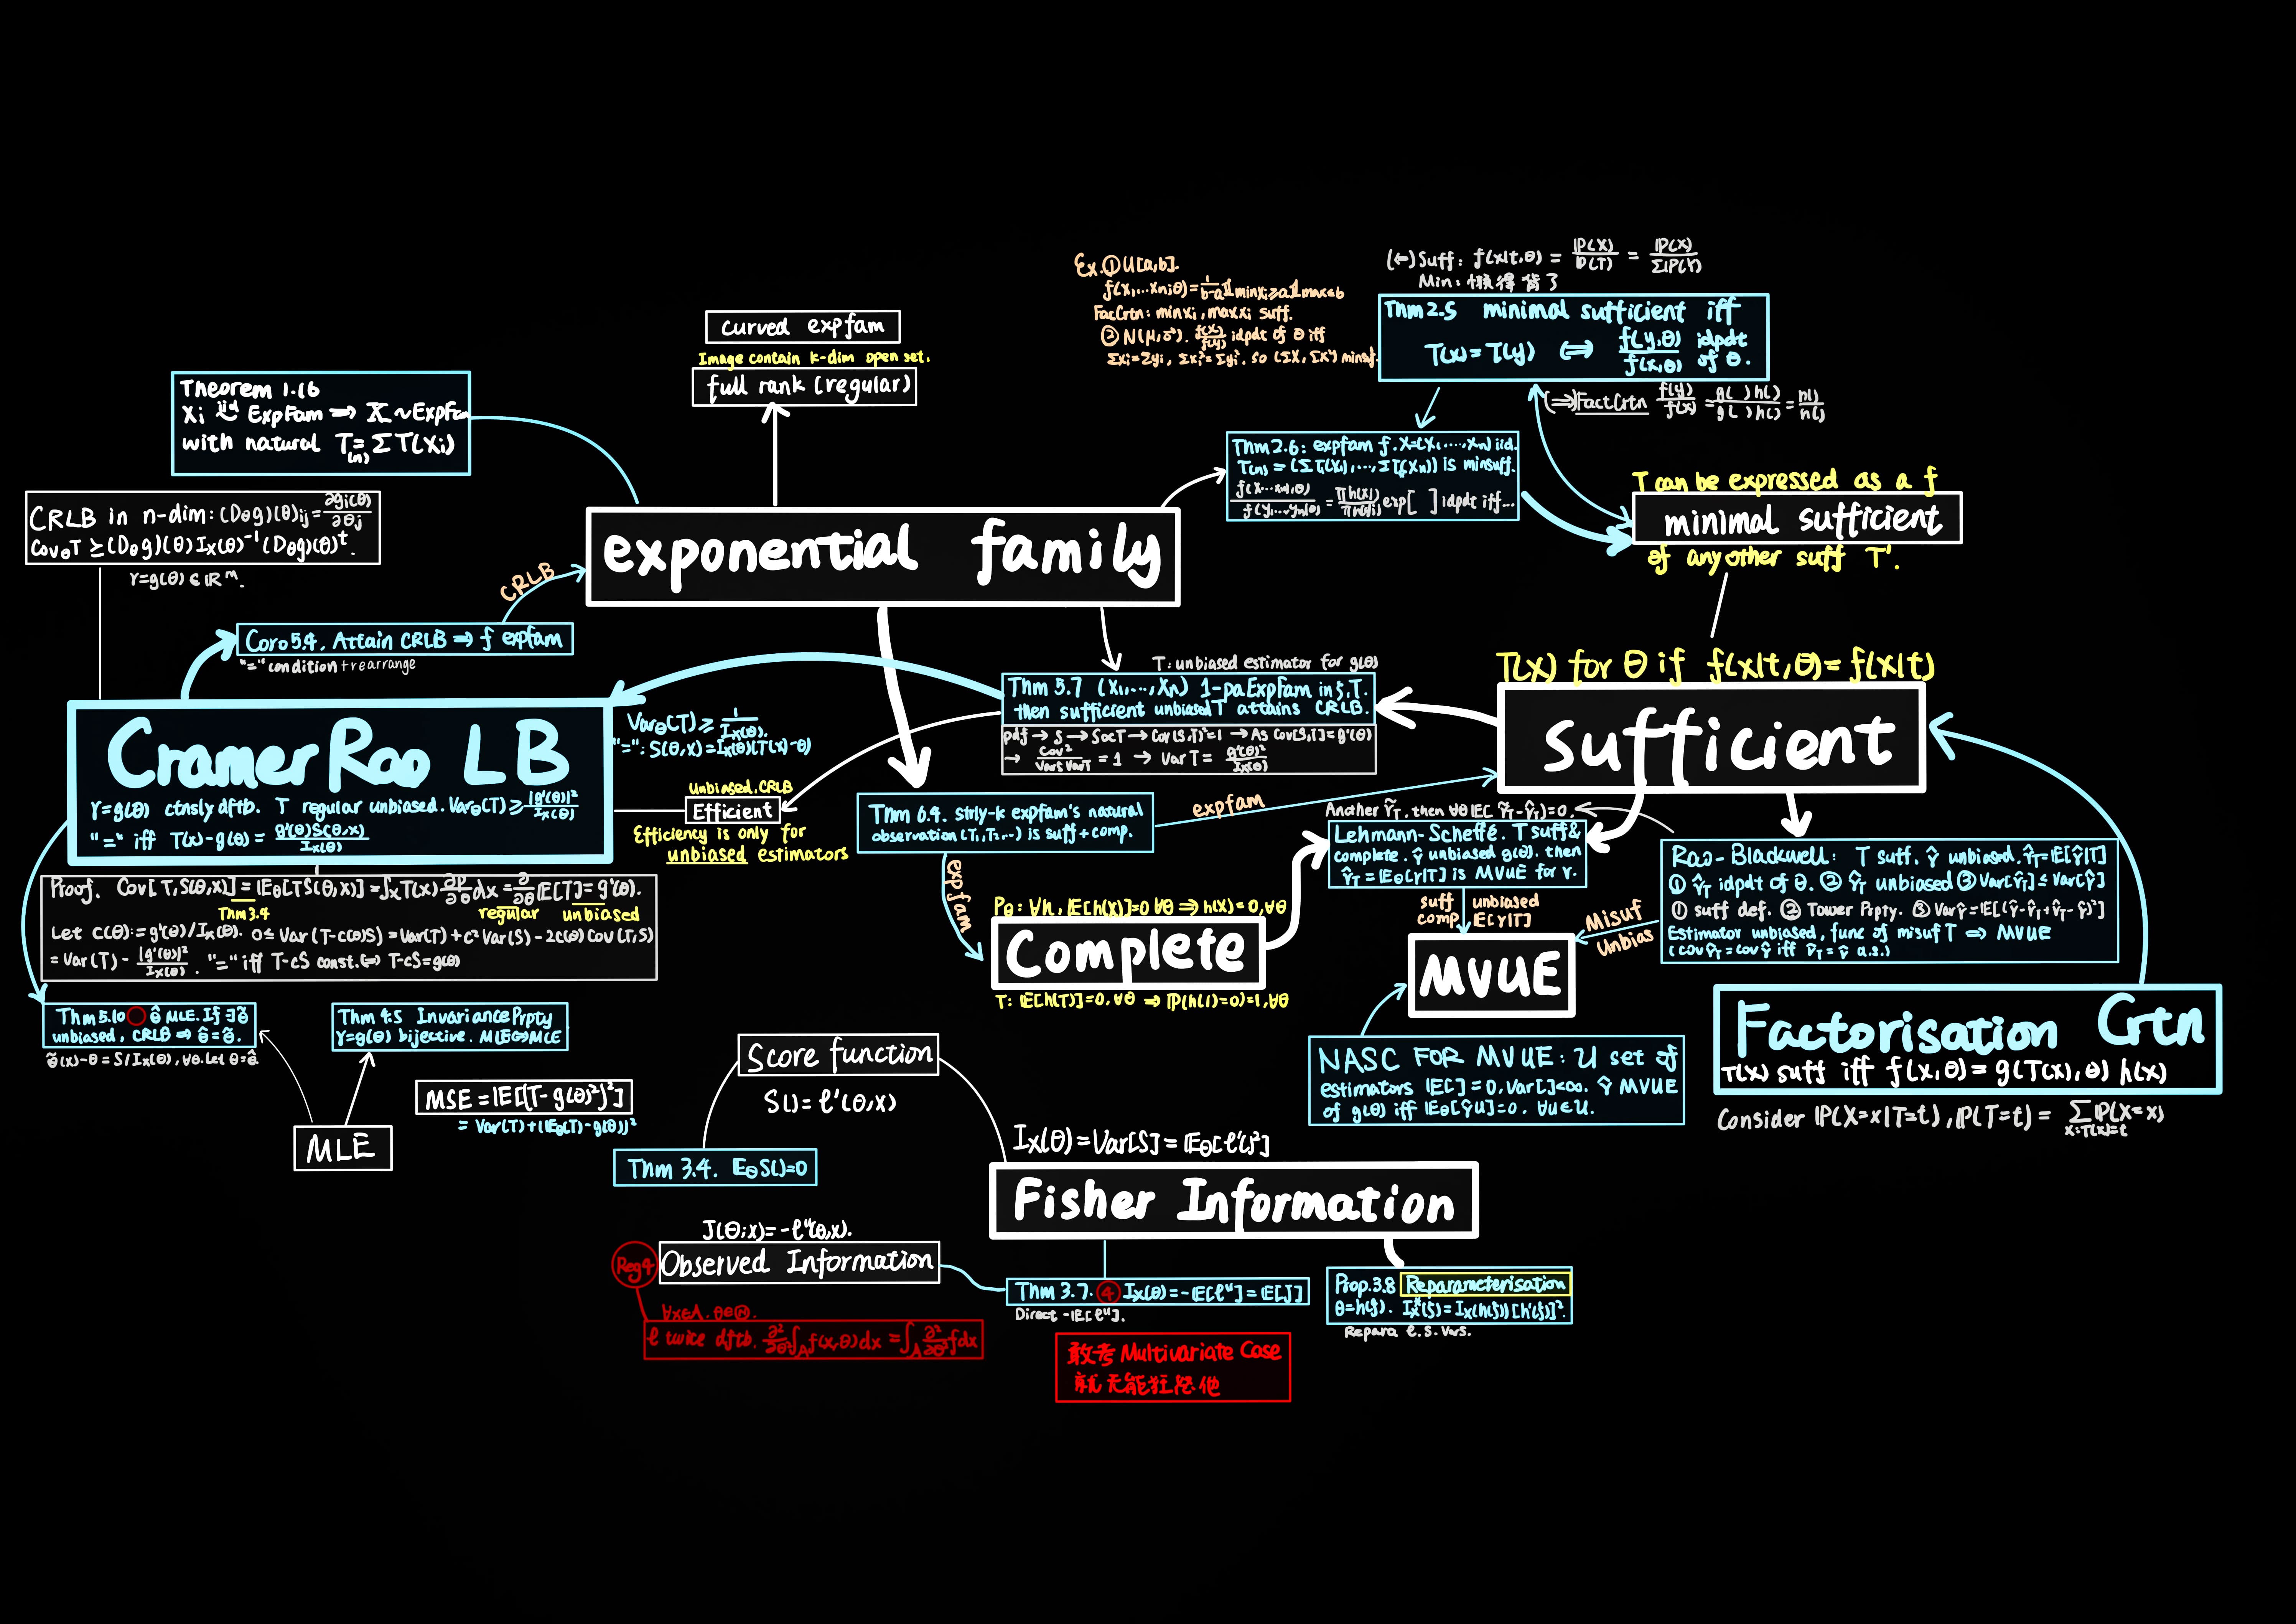 Ex. ① U[a,b].
f(x₁...xₙ;θ)=1/(b-a) 𝟙minxᵢ≥a 𝟙max≤b
FacCrtn: minxᵢ, maxxᵢ suff.
② N(μ,σ²). f(x)/f(y) idpdt of θ iff
Σxᵢ=Σyᵢ, Σxᵢ²=Σyᵢ². so (ΣX, ΣX²) minsuf.
(⇐) Suff: f(x|t,θ) = ℙ(X)/ℙ(T) = ℙ(X)/Σℙ(Y)
Min: 懒得背了
Thm 2.5 minimal sufficient iff
T(x)=T(y) ⇔ f(y,θ)/f(x,θ) idpdt of θ.
(⇒) FactCrtn f(y)/f(x) = g( )h( )/g( )h( ) = h()/h()
curved expfam
Image contain k-dim open set.
full rank (regular)
Theorem 1.16
Xᵢ iid~ ExpFam ⟹ X ~ ExpFam
with natural T(n) = ΣT(Xᵢ)
Thm 2.6: expfam f. X=(X₁,...,Xₙ) iid.
T(n) = (ΣT₁(Xᵢ),...,ΣTₖ(Xₙ)) is minsuff.
f(x₁...xₙ,θ)/f(y₁...yₙ,θ) = Πh(xᵢ)/Πh(yᵢ) exp[ ] idpdt iff...
T can be expressed as a f
minimal sufficient
of any other suff T'.
CRLB in n-dim: (Dθg)(θ)ᵢⱼ = ∂gᵢ(θ)/∂θⱼ
CovθT ≥ (Dθg)(θ) Iₓ(θ)⁻¹ (Dθg)(θ)ᵗ.
γ=g(θ)∈ℝᵐ.
exponential family
CRLB
Coro 5.4. Attain CRLB ⟹ f expfam
"=" condition + rearrange
T: unbiased estimator for g(θ)
Thm 5.7 (X₁,...,Xₙ) 1-pa ExpFam in ξ,T.
then sufficient unbiased T attains CRLB.
pdf → S → S∝T → Cor(S,T)²=1 → As Cov[S,T]=g'(θ)
→ Cov²/VarS VarT = 1 → VarT = g'(θ)²/Iₓ(θ)
T(X) for θ if f(x|t,θ)=f(x|t)
sufficient
Cramer Rao LB
γ=g(θ) ctnsly dftb. T regular unbiased. Varθ(T) ≥ |g'(θ)|²/Iₓ(θ)
"=" iff T(x)-g(θ) = g'(θ)S(θ,x)/Iₓ(θ)
Varθ(T) ≥ 1/Iₓ(θ).
"=": S(θ,x)=Iₓ(θ)(T(x)-θ)
Unbiased, CRLB
Efficient
Efficiency is only for
unbiased estimators
Thm 6.4. strly-k expfam's natural
observation (T₁,T₂,...) is suff + comp.
expfam
expfam
Another γ̃T, then ∀θ 𝔼[γ̃T-γ̂T]=0.
Lehmann-Scheffé. T suff &
complete. γ̂ unbiased g(θ). then
γ̂T = 𝔼θ[γ|T] is MVUE for γ.
suff
comp
unbiased
𝔼[γ|T]
Rao-Blackwell: T suff. γ̂ unbiased. γ̂T=𝔼[γ̂|T]
① γ̂T idpdt of θ. ② γ̂T unbiased ③ Var[γ̂T]≤Var[γ̂]
① suff def. ② Tower Prpty. ③ Varγ̂=𝔼[(γ̂-γ̂T+γ̂T-γ)²]
Estimator unbiased, func of misuf T ⟹ MVUE
(cov γ̂T = cov γ̂ iff γ̂T = γ̂ a.s.)
Misuf
Unbias
Proof. Cov[T,S(θ,x)] = 𝔼θ[TS(θ,x)] = ∫ₓT(x) ∂f/∂θ dx = ∂/∂θ 𝔼[T] = g'(θ).
Thm 3.4
regular
unbiased
Let c(θ):= g'(θ)/Iₓ(θ). 0 ≤ Var(T-c(θ)S) = Var(T)+c²Var(S)-2c(θ)Cov(T,S)
= Var(T) - |g'(θ)|²/Iₓ(θ). "=" iff T-cS const. ⇔ T-cS=g(θ)
Pθ: ∀h, 𝔼[h(X)]=0 ∀θ ⟹ h(x)=0, ∀θ
Complete
T: 𝔼[h(T)]=0, ∀θ ⟹ ℙ(h()=0)=1, ∀θ
MVUE
NASC FOR MVUE: U set of
estimators 𝔼[]=0, Var[]<∞. γ̂ MVUE
of g(θ) iff 𝔼θ[γ̂U]=0. ∀u∈U.
Factorisation Crtn
T(x) suff iff f(x,θ) = g(T(x),θ) h(x)
Consider ℙ(X=x|T=t), ℙ(T=t) = Σx:T(x)=t ℙ(X=x)
Thm 5.10 θ̂ MLE. If ∃ θ̃
unbiased, CRLB ⟹ θ̂=θ̃.
θ̃(x)-θ = S/Iₓ(θ), ∀θ. Let θ=θ̂.
Thm 4.5 Invariance Prpty
γ=g(θ) bijective. MLE⇔MLE
MSE = 𝔼[(T-g(θ)²)²]
= Var(T)+(𝔼θ(T)-g(θ))²
MLE
Score function
S() = ℓ'(θ,x)
Thm 3.4. 𝔼θ S()=0
Iₓ(θ) = Var[S] = 𝔼θ[ℓ'()²]
Fisher Information
J(θ;x) = -ℓ''(θ,x).
Reg4
Observed Information
∀x∈A. θ∈Θ.
ℓ twice dftb. ∂²/∂θ² ∫A f(x,θ)dx = ∫A ∂²/∂θ² f dx
Thm 3.7. ④ Iₓ(θ) = -𝔼[ℓ''] = 𝔼[J]
Direct -𝔼[ℓ''].
Prop.3.8 Reparameterisation
θ=h(ξ). Iₓ*(ξ) = Iₓ(h(ξ))[h'(ξ)]².
Repara ℓ. S. Vars.
敢考 Multivariate Case
就无能狂怒他